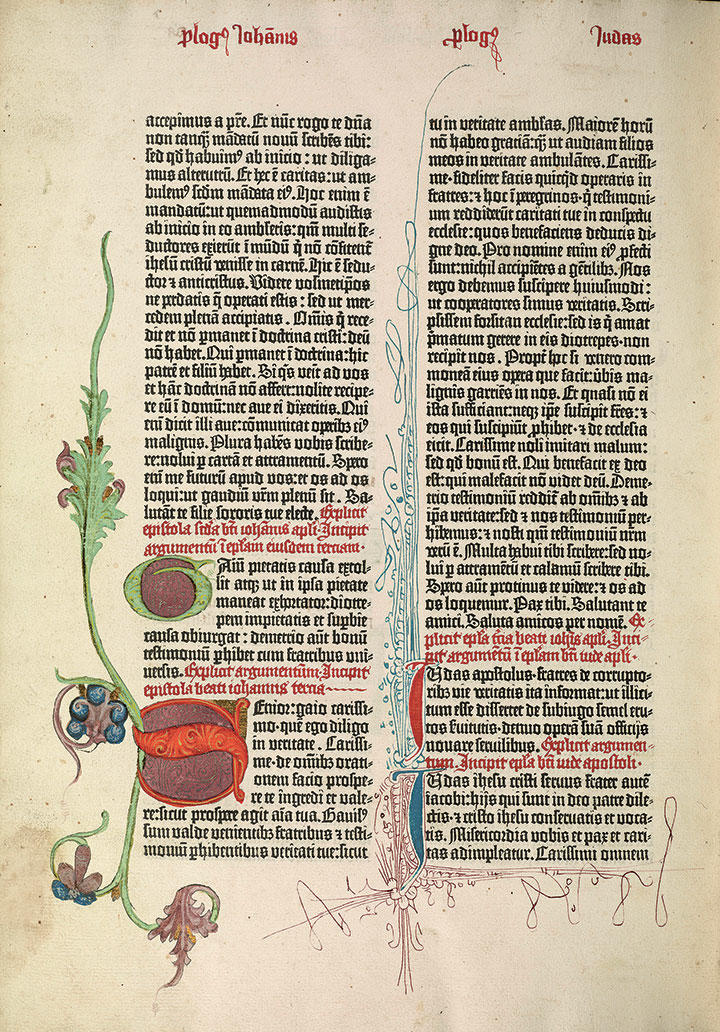 plogꝰ Iohānis
plogꝰ
Iudas
accepimus a pr̄e. Et nūc rogo te dn̄a
non tanqꝫ mādatū nouū scribēs tibi:
sed qd̄ habuimꝰ ab inicio : ut diliga-
mus alterutrū. Et hec ē caritas: ut am-
bulemꝰ scdm̄ mādata eiꝰ. Hoc enim ē
mandatū: ut quemadmodū audistis
ab inicio in eo ambletis: qm̄ multi se-
ductores exierūt ī mūdū q̄ nō cōfitent̄
ihesū cristū venisse in carnē. Hic ē sedu-
ctor ⁊ anticristus. Videte vosmetip̄os
ne perdatis q̄ operati estis : sed ut mer-
cedem plenā accipiatis . Om̄is q̄ rece-
dit et nō ꝑmanet ī doctrina cristi: deū
nō habet. Qui ꝑmanet ī doctrina: hic
patrē et filiū habet. Si qͥs veīt ad vos
et hāc doctrinā nō affert: nolite recipe-
re eū ī domū: nec aue ei dixeritis. Qui
em̄ dicit illi aue: cōmunicat operibꝫ eiꝰ
malignis. Plura habēs vobis scribe-
re: nolui ꝑ cartā et attramentū. Spero
em̄ me futurū apud vos: et os ad os
loqui: ut gaudiū vr̄m plenū sit. Sa-
lutāt te filie sororis tue electe. Explicit
epistola sc̄da bt̄i iohānis apl̄i. Incipit
argumentū ī epl̄am eiusdem terciam.
Gaiū pietatis causa extol-
lit atqꝫ ut in ipsa pietate
maneat exhortator: diotre-
pem impietatis et suꝑbie
causa obiurgat : demetrio aūt bonū
testimoniū ꝑhibet cum fratribus uni-
uersis. Explicit argumentum. Incipit
epistola beati iohannis tercia
Senior: gaio carissi-
mo. quē ego diligo
in veritate . Carissi-
me. de om̄ibꝫ orati-
onem facio prospe-
re te ingredi et vale-
re: sicut prospere agit aīa tua. Gauisꝰ
sum valde venientibꝫ fratribus ⁊ testi-
moniū ꝑhibentibus veritati tue: sicut
tu in veritate amblas. Maiorē horū
nō habeo gratiā: qͣꝫ ut audiam filios
meos in veritate ambulātes. Carissi-
me. fideliter facis quicqͥd operaris in
fratres: ⁊ hoc ī peregrinos. q̄ testimoni-
um reddiderūt caritati tue in conspectu
ecclesie: quos benefaciens deducis di-
gne deo. Pro nomine enim eiꝰ ꝓfecti
sunt: nichil accipiētes a gētilibꝫ. Nos
ergo debemus suscipere huiusmodi :
ut cooperatores simus veritatis. Scri-
psissem forsitan ecclesie: sed is q̄ amat
ꝓmatum gerere in eis diotrepes. non
recipit nos . Propt̄ hͦ si venero com-
moneā eius opera que facit: ūbis ma-
lignis garriēs in nos. Et quasi nō ei
ista sufficiant: neqꝫ ip̄e suscipit fr̄es: ⁊
eos qui suscipiūt ꝓhibet . ⁊ de ecclesia
eicit. Carissime noli imitari malum:
sed qd̄ bonū est. Qui benefacit ex deo
est: qui malefacit nō videt deū. Deme-
trio testimoniū reddit̄ ab om̄ibꝫ ⁊ ab
ip̄a veritate: sed ⁊ nos testimoniū per-
hibemus: ⁊ nosti qm̄ testimoniū nr̄m
verū ē. Multa habui tibi scribere: sed no-
lui ꝑ attramētū et calamū scribere tibi.
Spero aūt protinus te videre: ⁊ os ad
os loquemur. Pax tibi. Salutant te
amici. Saluta amicos per nomē. Ex-
plicit epl̄a t̄cia beate ioh̄is apl̄i. Inci-
pit argumētū ī epl̄am bt̄i iude apl̄i.
Iudas apostolus. fratres de corrupto-
ribꝫ vie veritatis ita informat: ut illici-
tum esse disseret de subiugo semel eruc-
tos ẜuitutis. denuo operā suā officijs
nouare seruilibus. Explicit argumen-
tum. Incipit epl̄a bt̄i iude apostoli.
Iudas ihesu cristi seruus frater autē
iacobi: hijs qui sunt in deo patre dile-
ctis. ⁊ cristo ihesu conseruatis et voca-
tis. Misericordia vobis et pax et cari-
tas adimpleatur. Carissimi omnem